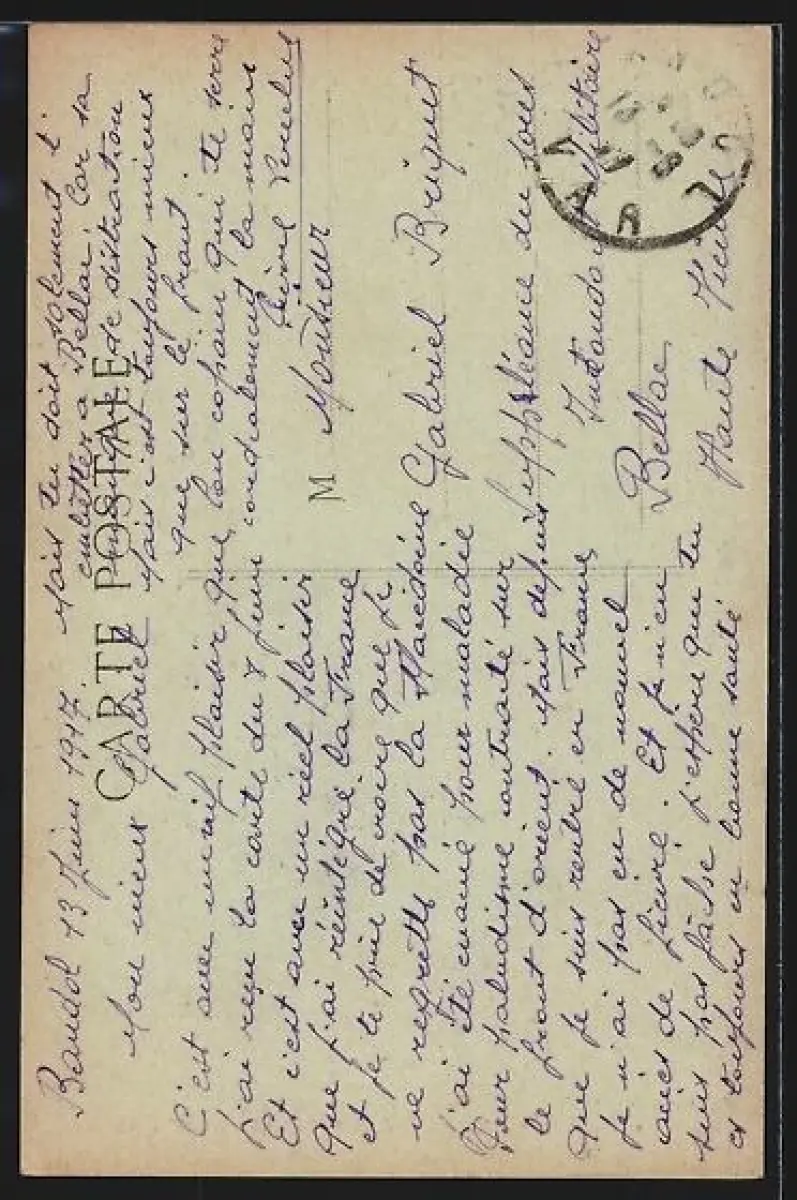 CARTE POSTALE
Bandol 13 Juin 1917.
Mon vieux Gabriel
C'est avec un vif plaisir que
j'ai reçu la carte du 7 Juin
Et c'est avec un réel plaisir
que j'ai réintégré la France
et je te prie de croire que je
ne regrette pas la Macédoine
j'ai été évacué pour maladie
Pour paludisme contracté sur
le front d'orient. Mais depuis
que je suis rentré en France
je n'ai pas eu de nouvel
accès de fièvre. Et je n'en
suis pas fâché j'espère que tu
es toujours en bonne santé
Mais tu dois salement t'
embêter a Bellac, Car sa
manque de distraction
Mais c'est toujours mieux
que sur le front.
ton copain qui te serre
cordialement la main
M Monsieur
Gabriel Briquet
Suppléance du sous
Intendant Militaire
Bellac
Haute Vienne